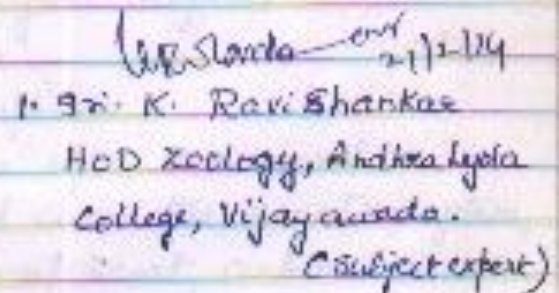 21/2/14
1. Sri. K. Ravi Shankar
HOD Zoology, Andhra Lyola
College, Vijayawada.
(Subject expert)